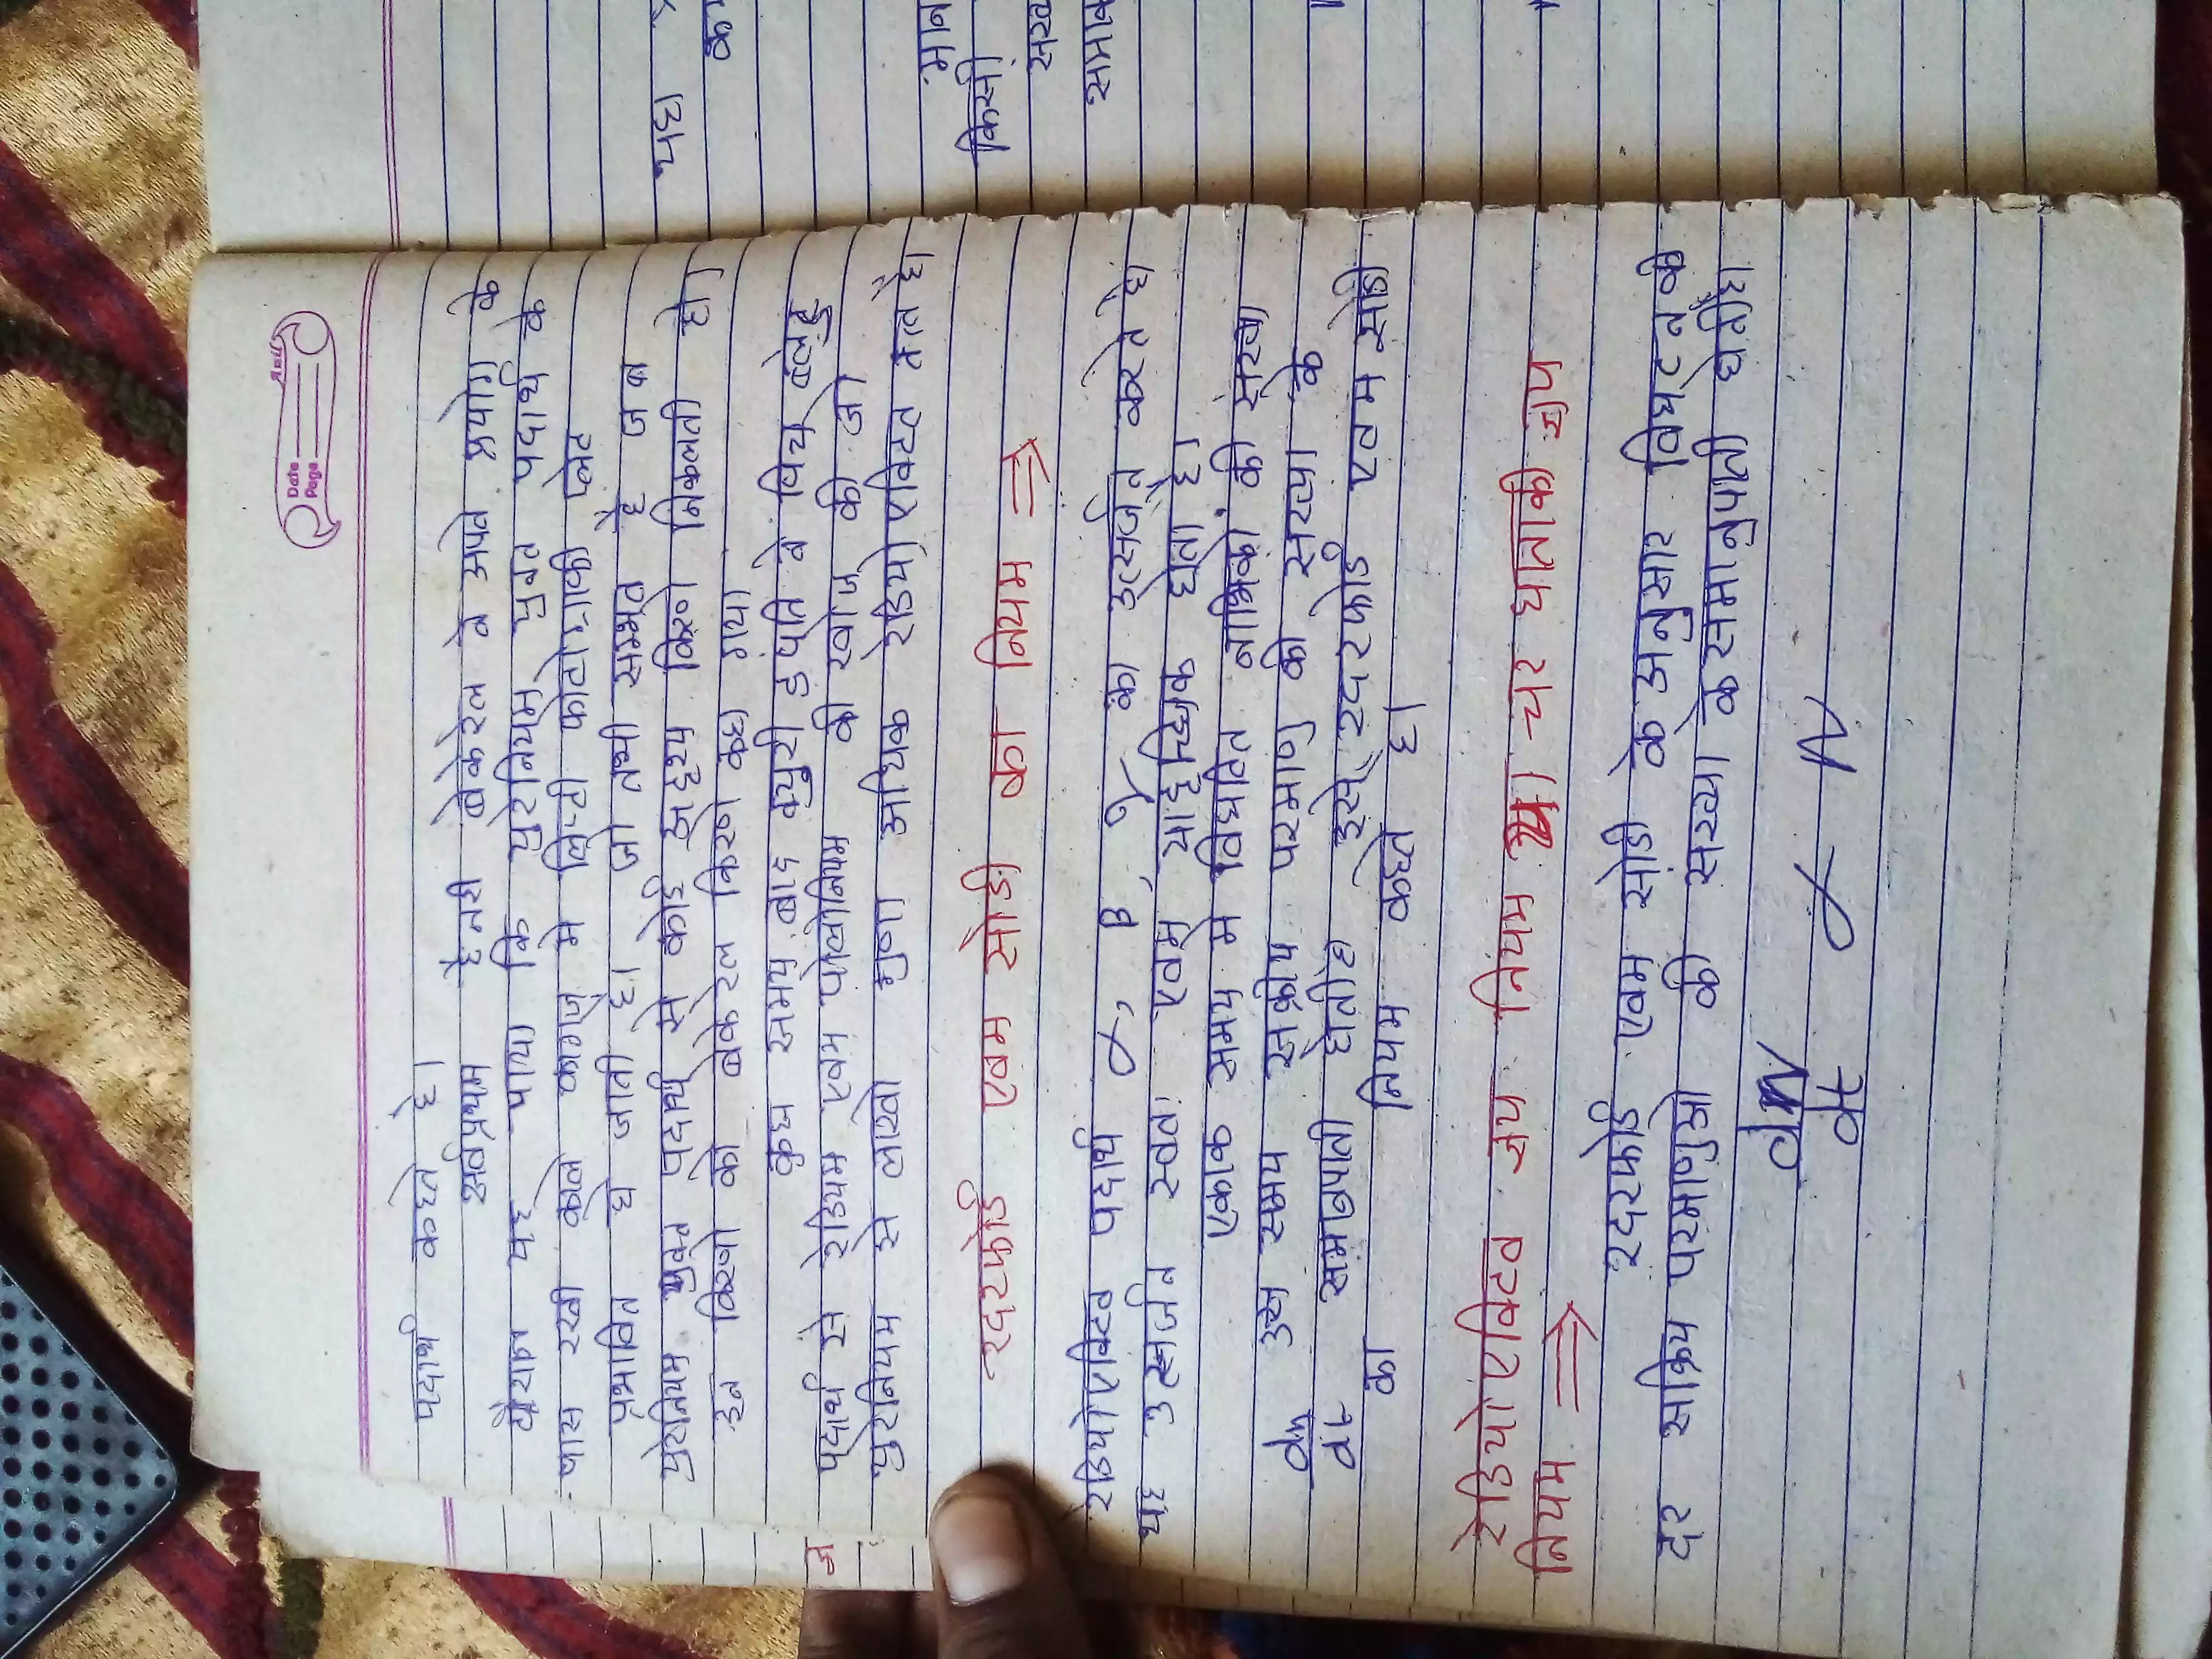 Date
Page
पदार्थ कहते है।
सर्वप्रथम हेनरी बेकेरल ने अपने प्रयोग के
दौरान यह पाया कि युरेनियम युक्त पदार्थ के
पास रखी काले कागज मे लिप्टी फोटोग्राफी प्लेट
प्रभावित हो जाती है। जो तभी सम्भव है जब
युरेनियम युक्त पदार्थ से कोई अदृश्य किरणे निकलती हो।
इन किरणो को बेकेरल किरण कहा गया।
कुछ समय बाद क्युरी डंपति ने विच
पदार्थ से रेडियम एवम पोलोनियम की खोज की जो
युरेनियम से लाखो गुणा अधिक रेडियोएक्टिव तत्व है।
रदरफोर्ड एवम सोडी का नियम ⇒
रेडियोएक्टिव पदार्थ α, β, γ का उत्सर्जन करते है
यह उत्सर्जन स्वतः एवम् यादृच्छिक होता है।
एकांक समय मे विघटित नाभिको की संख्या
dn/dt उस समय सक्रीय परमाणु की संख्या के
समानुपाती होती है इसे रदरफोर्ड एवम सोडी
का नियम कहते है।
रेडियोएक्टिव क्षय नियम या चर घातांकी क्षय
नियम ⇒
रदरफोर्ड एवम सोडी के अनुसार विघटन की
दर सक्रिय परमाणुओ की संख्या के समानुपाती होती है।
dN/dt ∝ N
यह
क
मान
किसी